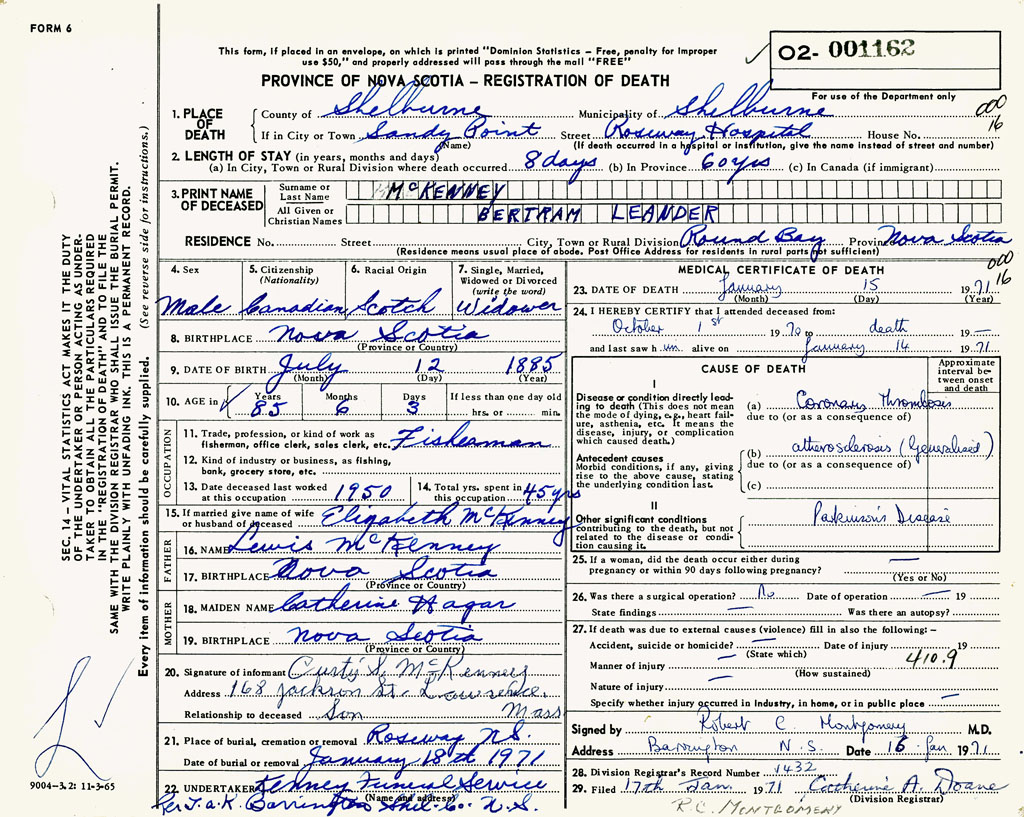 FORM 6
This form, if placed in an envelope, on which is printed "Dominion Statistics – Free, penalty for improper
use $50," and properly addressed will pass through the mail "FREE"
O2- 001162
PROVINCE OF NOVA SCOTIA – REGISTRATION OF DEATH
For use of the Department only
000
16
1. PLACE OF DEATH
County of Shelburne Municipality of Shelburne
If in City or Town Sandy Point Street Roseway Hospital House No.
(Name) (If death occurred in a hospital or institution, give the name instead of street and number)
2. LENGTH OF STAY (in years, months and days)
(a) In City, Town or Rural Division where death occurred 8 days (b) In Province 60 yrs (c) In Canada (if immigrant)
3. PRINT NAME OF DECEASED
Surname or Last Name McKENNEY
All Given or Christian Names BERTRAM LEANDER
RESIDENCE No. Street City, Town or Rural Division Round Bay Province Nova Scotia
(Residence means usual place of abode. Post Office Address for residents in rural parts not sufficient)
4. Sex
Male
5. Citizenship
(Nationality)
Canadian
6. Racial Origin
Scotch
7. Single, Married,
Widowed or Divorced
(write the word)
Widower
8. BIRTHPLACE Nova Scotia
(Province or Country)
9. DATE OF BIRTH July 12 1885
(Month) (Day) (Year)
10. AGE in Years Months Days If less than one day old
85 6 3 hrs. or min.
OCCUPATION
11. Trade, profession, or kind of work as
fisherman, office clerk, sales clerk, etc. Fisherman
12. Kind of industry or business, as fishing,
bank, grocery store, etc.
13. Date deceased last worked
at this occupation 1950
14. Total yrs. spent in
this occupation 45 yrs
15. If married give name of wife
or husband of deceased Elizabeth McKenney
FATHER
16. NAME Lewis McKenney
17. BIRTHPLACE Nova Scotia
(Province or Country)
MOTHER
18. MAIDEN NAME Catherine Hagar
19. BIRTHPLACE Nova Scotia
(Province or Country)
20. Signature of informant Curtis S. McKenney
Address 168 Jackson St. Lawrence,
Relationship to deceased Son Mass
21. Place of burial, cremation or removal Roseway N.S.
Date of burial or removal January 18th 1971
22. UNDERTAKER Kenney Funeral Service
(Name and address)
per J.a.K. Barrington Shel. Co. N.S.
MEDICAL CERTIFICATE OF DEATH
000
16
23. DATE OF DEATH January 15 1971
(Month) (Day) (Year)
24. I HEREBY CERTIFY that I attended deceased from:
October 1st 1970 to death 19 —
and last saw him alive on January 14 1971
CAUSE OF DEATH
Approximate
interval be-
tween onset
and death
I
Disease or condition directly lead-
ing to death (This does not mean
the mode of dying, e.g., heart fail-
ure, asthenia, etc. It means the
disease, injury, or complication
which caused death.)
(a) Coronary Thrombosis
due to (or as a consequence of)
Antecedent causes
Morbid conditions, if any, giving
rise to the above cause, stating
the underlying condition last.
(b) atherosclerosis (Generalised)
due to (or as a consequence of)
(c)
II
Other significant conditions
contributing to the death, but not
related to the disease or condi-
tion causing it.
Parkinson's Disease
25. If a woman, did the death occur either during
pregnancy or within 90 days following pregnancy? —
(Yes or No)
26. Was there a surgical operation? No Date of operation — 19
State findings — Was there an autopsy?
27. If death was due to external causes (violence) fill in also the following: –
Accident, suicide or homicide? — Date of injury 19
(State which)
Manner of injury — 410.9
(How sustained)
Nature of injury —
Specify whether injury occurred in industry, in home, or in public place —
Signed by Robert C Montgomery M.D.
Address Barrington N.S. Date 16 Jan 1971
28. Division Registrar's Record Number 1432
29. Filed 17th Jan. 1971 Catherine A. Doane
(Division Registrar)
R.C. MONTGOMERY
SEC. 14 – VITAL STATISTICS ACT MAKES IT THE DUTY
OF THE UNDERTAKER OR PERSON ACTING AS UNDER-
TAKER TO OBTAIN ALL THE PARTICULARS REQUIRED
IN THE "REGISTRATION OF DEATH" AND TO FILE THE
SAME WITH THE DIVISION REGISTRAR WHO SHALL ISSUE THE BURIAL PERMIT.
WRITE PLAINLY WITH UNFADING INK. THIS IS A PERMANENT RECORD.
Every item of information should be carefully supplied. (See reverse side for instructions.)
9004–3.2: 11-3-65